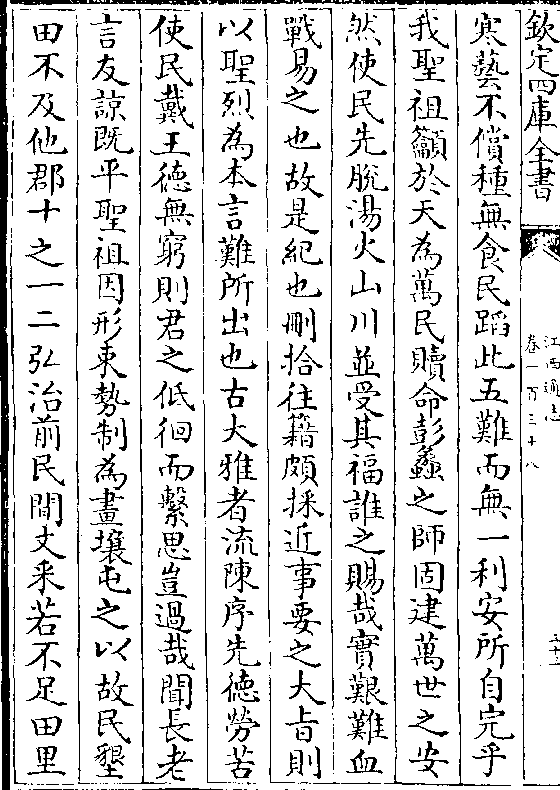 欽定四庫全書
江西通志
卷一百三十八
寒藝不償種無食民蹈此五難而無一利安所自完乎
我聖祖籲於天為萬民贖命彭蠡之師固建萬世之安
然使民先脫湯火山川並受其福誰之賜哉實艱難血
戰易之也故是紀也刪拾往籍頗採近事要之大旨則
以聖烈為本言難所出也古大雅者流陳序先德勞苦
使民戴王德無窮則君之低徊而繫思豈過哉聞長老
言友諒既平聖祖因形束勢制為畫壤屯之以故民墾
田不及他郡十之一二弘治前民間丈采若不足田里